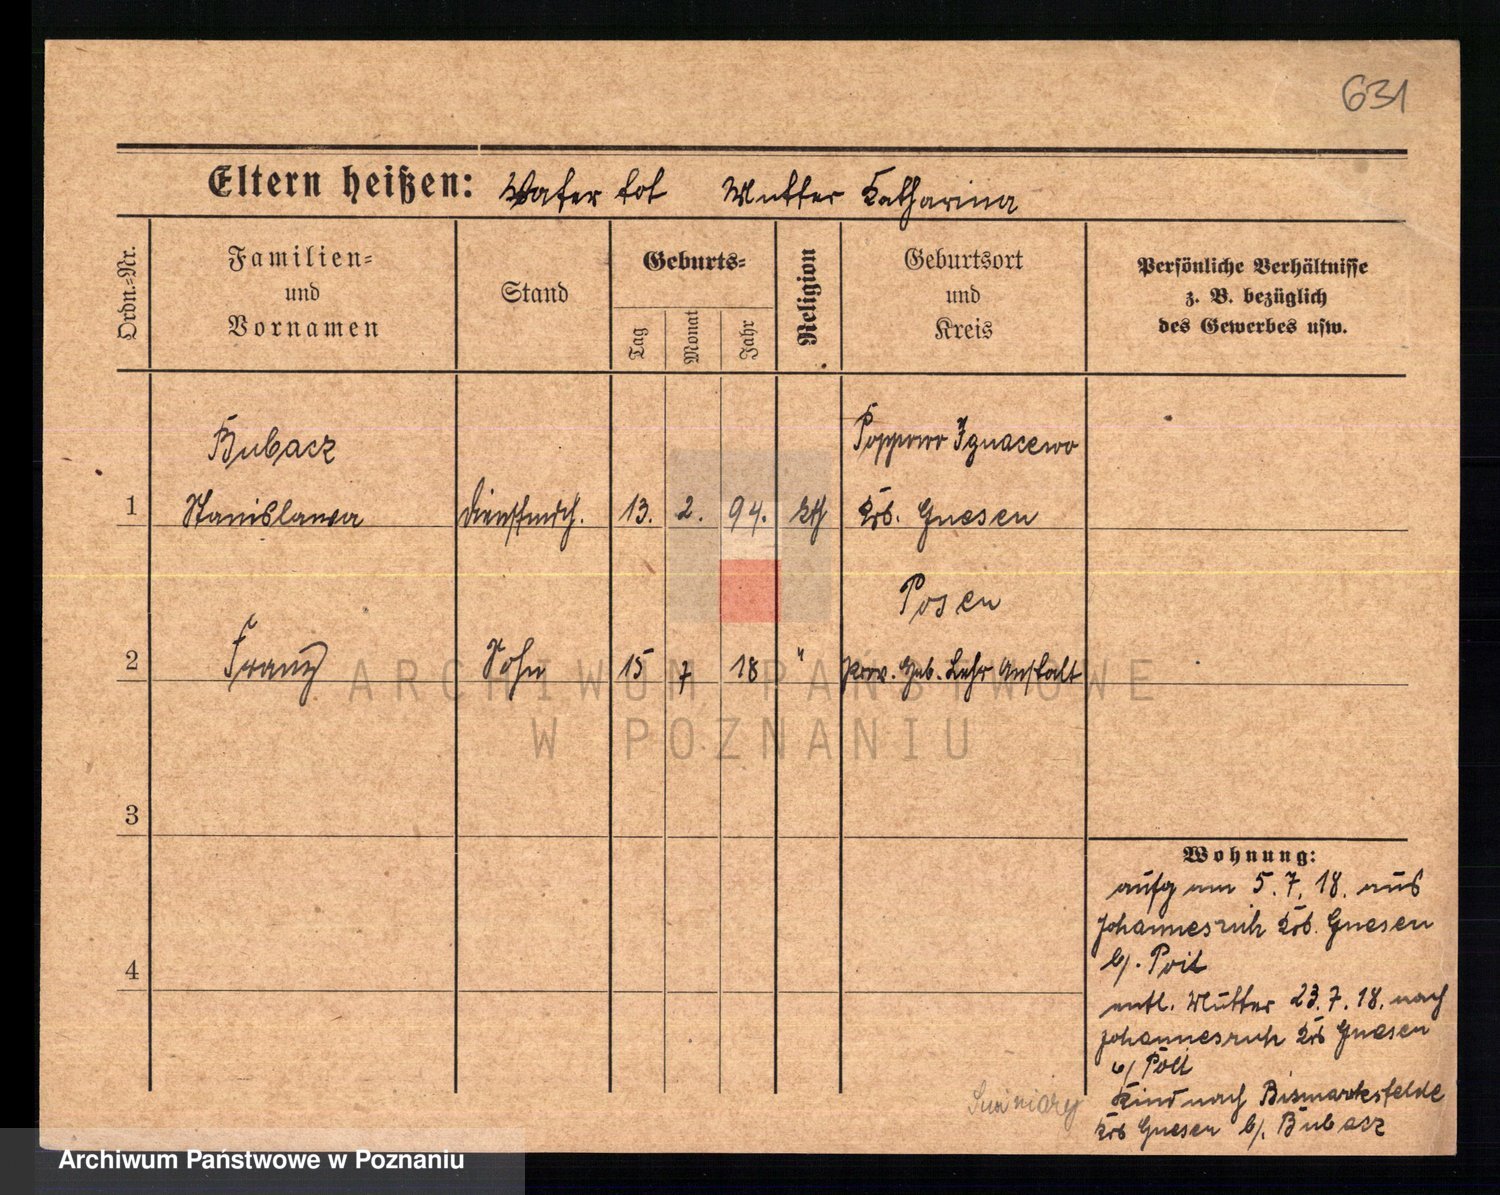 631
Eltern heißen: Vater tot Mutter Katharina
Ordn.-Nr.
Familien-
und
Vornamen
Stand
Geburts-
Tag
Monat
Jahr
Religion
Geburtsort
und
Kreis
Persönliche Verhältnisse
z. B. bezüglich
des Gewerbes usw.
Bubacz
Poppowo Ignacewo
1 Stanislawa Dienstmdch. 13. 2. 94. kth Krs. Gnesen
Posen
2 Franz Sohn 15 7 18 " Prov. Heb. Lehr Anstalt
ARCHIWUM PAŃSTWOWE
W POZNANIU
3
4
Wohnung:
aufg am 5. 7. 18. aus
Johannesruh Krs. Gnesen
b/.
entl. Mutter 23. 7. 18. nach
Johannesruh Krs Gnesen
b/
Kind nach Bismarcksfelde
Krs Gnesen b/. Bubacz
Archiwum Państwowe w Poznaniu